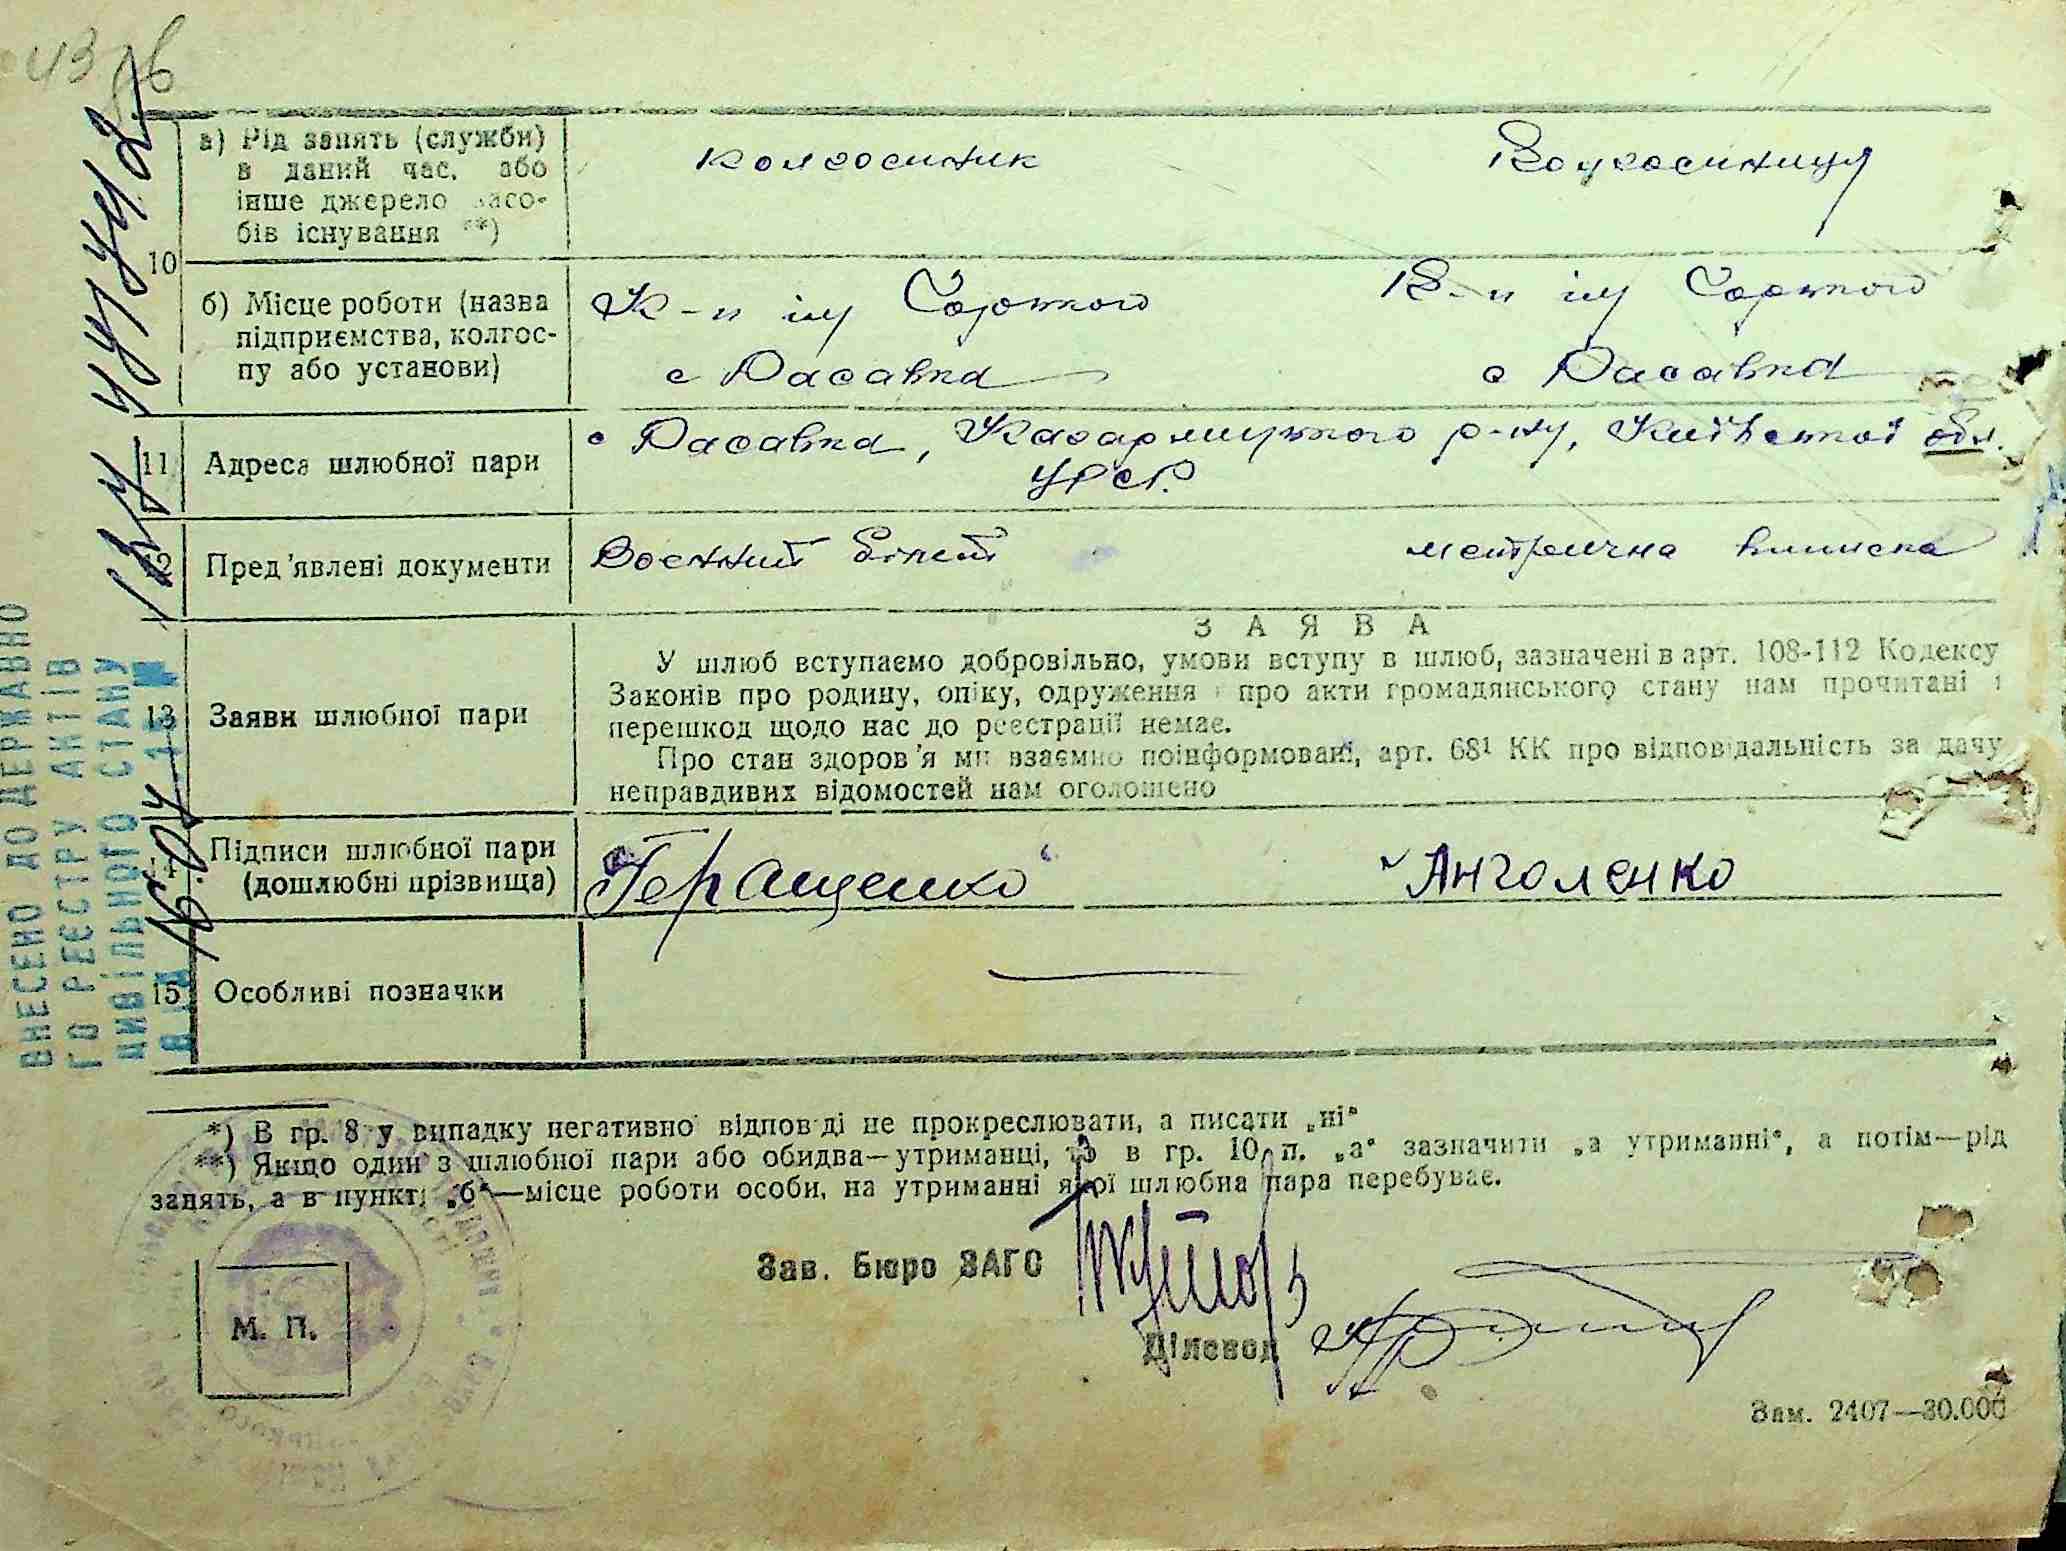 43
а) Рід занять (служби)
в даний час, або
інше джерело засо-
бів існування **)
колгосник
Колгосниця
10
б) Місце роботи (назва
підприємства, колгос-
пу або установи)
К-п ім Горького
с Расавка
К-п ім Горького
с Расавка
11 Адреса шлюбної пари
с Расавка, Кагарлицького р-ну, Київської обл.
УРСР.
12 Пред'явлені документи
Воєнний білет
метрична виписка
13 Заяви шлюбної пари
ЗАЯВА
У шлюб вступаємо добровільно, умови вступу в шлюб, зазначені в арт. 108-112 Кодексу
Законів про родину, опіку, одруження і про акти громадянського стану нам прочитані і
перешкод щодо нас до реєстрації немає.
Про стан здоров'я ми взаємно поінформовані, арт. 68¹ КК про відповідальність за дачу
неправдивих відомостей нам оголошено
14 Підписи шлюбної пари
(дошлюбні прізвища)
Геращенко
Анголенко
15 Особливі позначки
ВНЕСЕНО ДО ДЕРЖАВНО
ГО РЕЄСТРУ АКТІВ
ЦИВІЛЬНОГО СТАНУ
*) В гр. 8 у випадку негативно відповіді не прокреслювати, а писати „ні“
**) Якщо один з шлюбної пари або обидва—утриманці, то в гр. 10 п. „а“ зазначити „а утриманні“, а потім—рід
занять, а в пункті „б“—місце роботи особи, на утриманні якої шлюбна пара перебуває.
М. П.
Зав. Бюро ЗАГС
Діловод
Зам. 2407—30.000